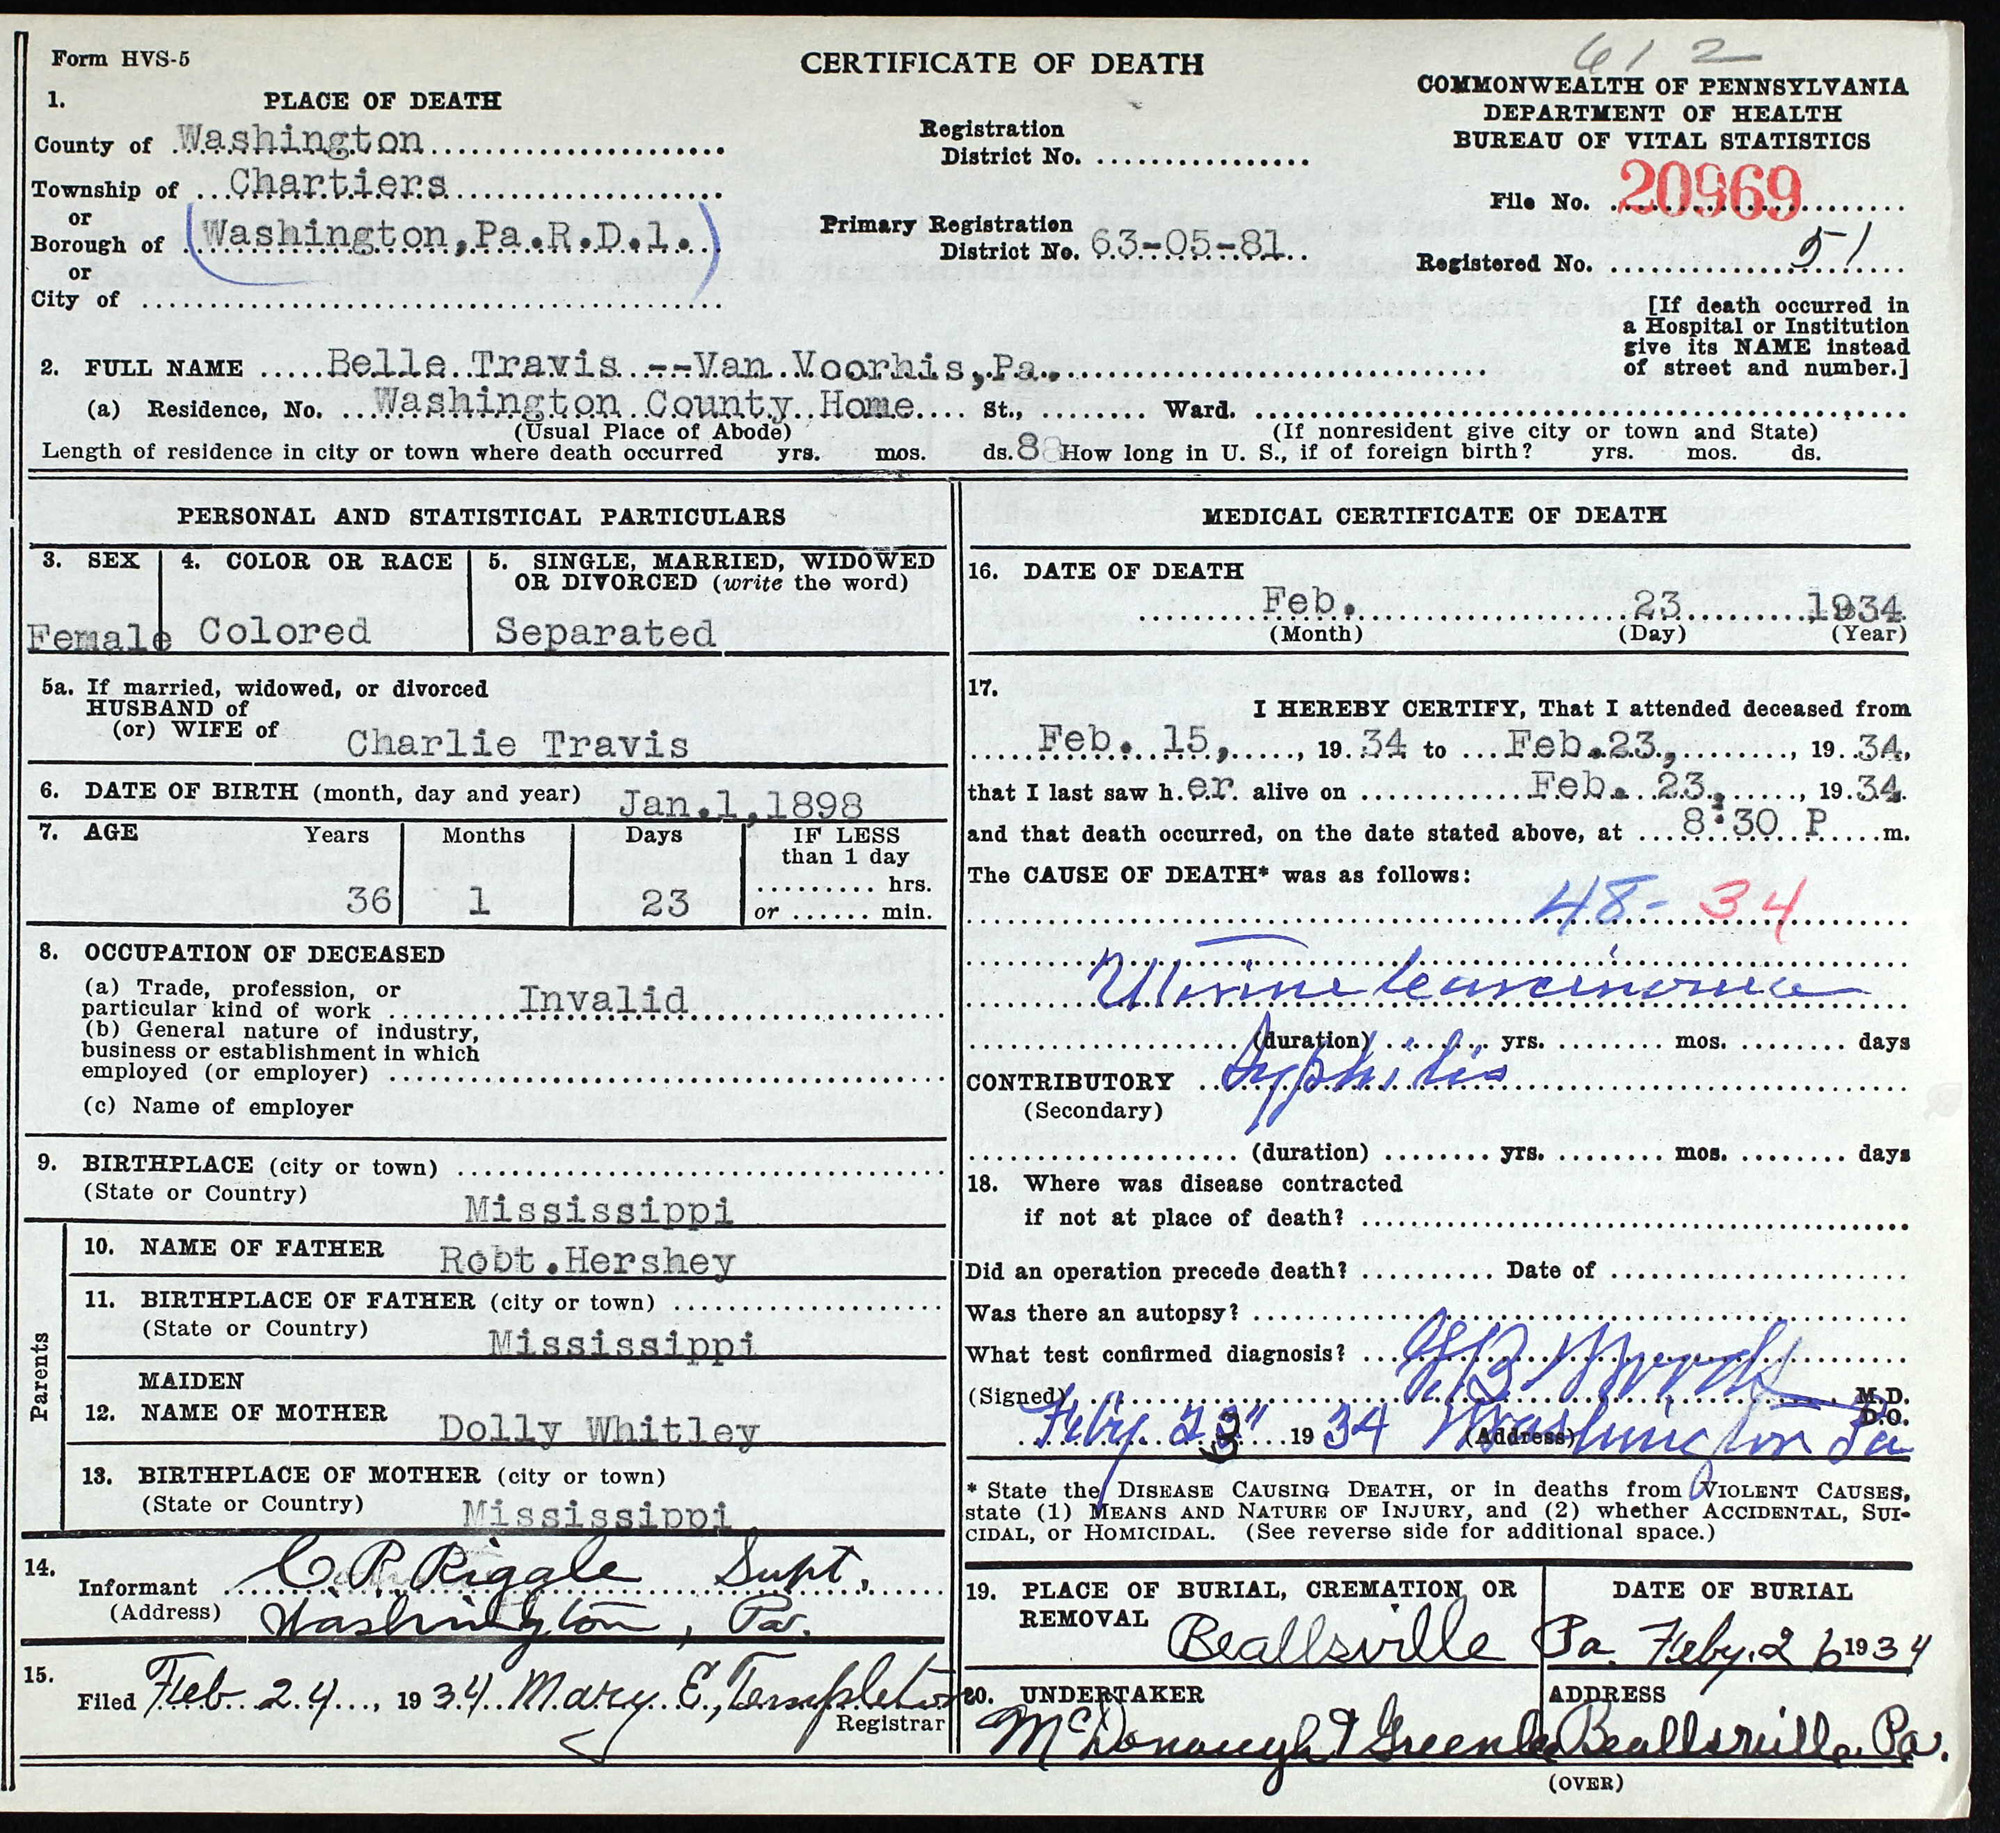 612
Form HVS-5
CERTIFICATE OF DEATH
COMMONWEALTH OF PENNSYLVANIA
DEPARTMENT OF HEALTH
BUREAU OF VITAL STATISTICS
1. PLACE OF DEATH
County of Washington
Township of Chartiers
or
Borough of Washington,Pa.R.D.1.
or
City of
Registration
District No.
Primary Registration
District No. 63-05-81
File No. 20969
Registered No. 51
[If death occurred in
a Hospital or Institution
give its NAME instead
of street and number.]
2. FULL NAME Belle Travis --Van Voorhis,Pa.
(a) Residence, No. Washington County Home St., Ward.
(Usual Place of Abode) (If nonresident give city or town and State)
Length of residence in city or town where death occurred yrs. mos. ds. 8 How long in U. S., if of foreign birth? yrs. mos. ds.
PERSONAL AND STATISTICAL PARTICULARS
3. SEX
Female
4. COLOR OR RACE
Colored
5. SINGLE, MARRIED, WIDOWED
OR DIVORCED (write the word)
Separated
5a. If married, widowed, or divorced
HUSBAND of
(or) WIFE of Charlie Travis
6. DATE OF BIRTH (month, day and year) Jan.1,1898
7. AGE Years Months Days IF LESS
than 1 day
hrs.
36 1 23 or min.
8. OCCUPATION OF DECEASED
(a) Trade, profession, or
particular kind of work Invalid
(b) General nature of industry,
business or establishment in which
employed (or employer)
(c) Name of employer
9. BIRTHPLACE (city or town)
(State or Country) Mississippi
Parents
10. NAME OF FATHER Robt.Hershey
11. BIRTHPLACE OF FATHER (city or town)
(State or Country) Mississippi
MAIDEN
12. NAME OF MOTHER Dolly Whitley
13. BIRTHPLACE OF MOTHER (city or town)
(State or Country) Mississippi
14.
Informant C. P. Riggle Supt.
(Address) Washington, Pa.
15.
Filed Feb. 24, 1934. Mary E. Templeton
Registrar
MEDICAL CERTIFICATE OF DEATH
16. DATE OF DEATH
Feb. 23 1934
(Month) (Day) (Year)
17.
I HEREBY CERTIFY, That I attended deceased from
Feb. 15, , 19 34 to Feb.23, , 19 34,
that I last saw h er alive on Feb. 23, , 19 34.
and that death occurred, on the date stated above, at 8:30 P m.
The CAUSE OF DEATH* was as follows:
48- 34
Uterine Carcinoma
(duration) yrs. mos. days
CONTRIBUTORY Syphilis
(Secondary)
(duration) yrs. mos. days
18. Where was disease contracted
if not at place of death?
Did an operation precede death? Date of
Was there an autopsy?
What test confirmed diagnosis?
(Signed) M.D.
D.O.
Feby. 23" 1934 (Address) Washington Pa
* State the DISEASE CAUSING DEATH, or in deaths from VIOLENT CAUSES,
state (1) MEANS AND NATURE OF INJURY, and (2) whether ACCIDENTAL, SUI-
CIDAL, or HOMICIDAL. (See reverse side for additional space.)
19. PLACE OF BURIAL, CREMATION OR
REMOVAL Beallsville Pa.
DATE OF BURIAL
Feby. 26 1934
20. UNDERTAKER
McDonough & Greenlee
ADDRESS
Beallsville, Pa.
(OVER)